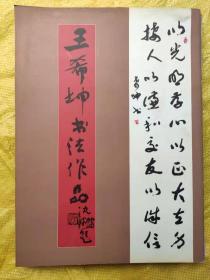 以光明存心以正大立身
接人以谦和交友以诚信
希坤书
王希坤书法作品
沈鹏题